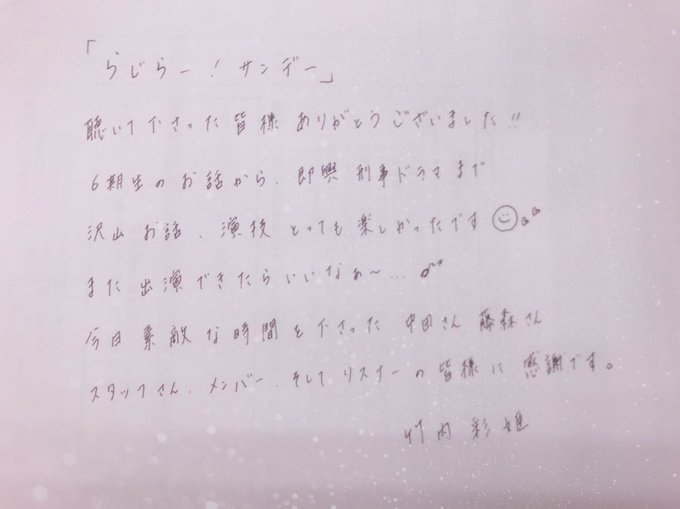 「らじらー！サンデー」
聴いて下さった皆様ありがとうございました!!
6期生のお話から、即興刑事ドラマまで
沢山お話、演技とっても楽しかったです
また出演できたらいいなぁ〜...♪
今日素敵な時間を下さった中田さん藤森さん
スタッフさん、メンバー、そしてリスナーの皆様に感謝です。
竹内彩姫